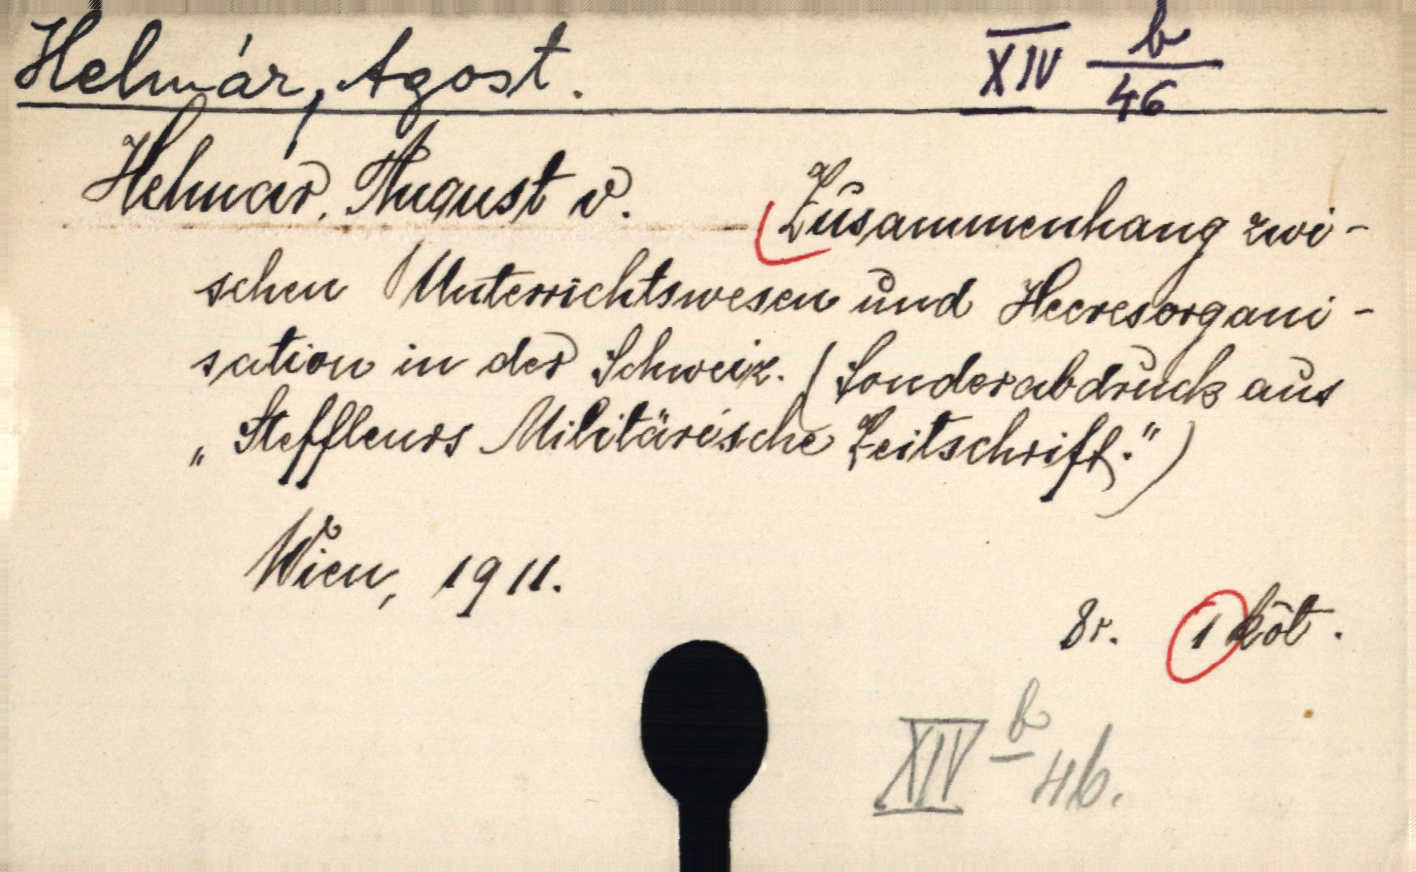 Helmár, Agost.
XIV b/46
Helmár, August v. Zusammenhang zwi-
schen Unterrichtswesen und Heeresorgani-
sation in der Schweiz. (Sonderabdruck aus
„Steffleurs Militärische Zeitschrift.")
Wien, 1911.
8r. 1 köt.
XIV b/46.